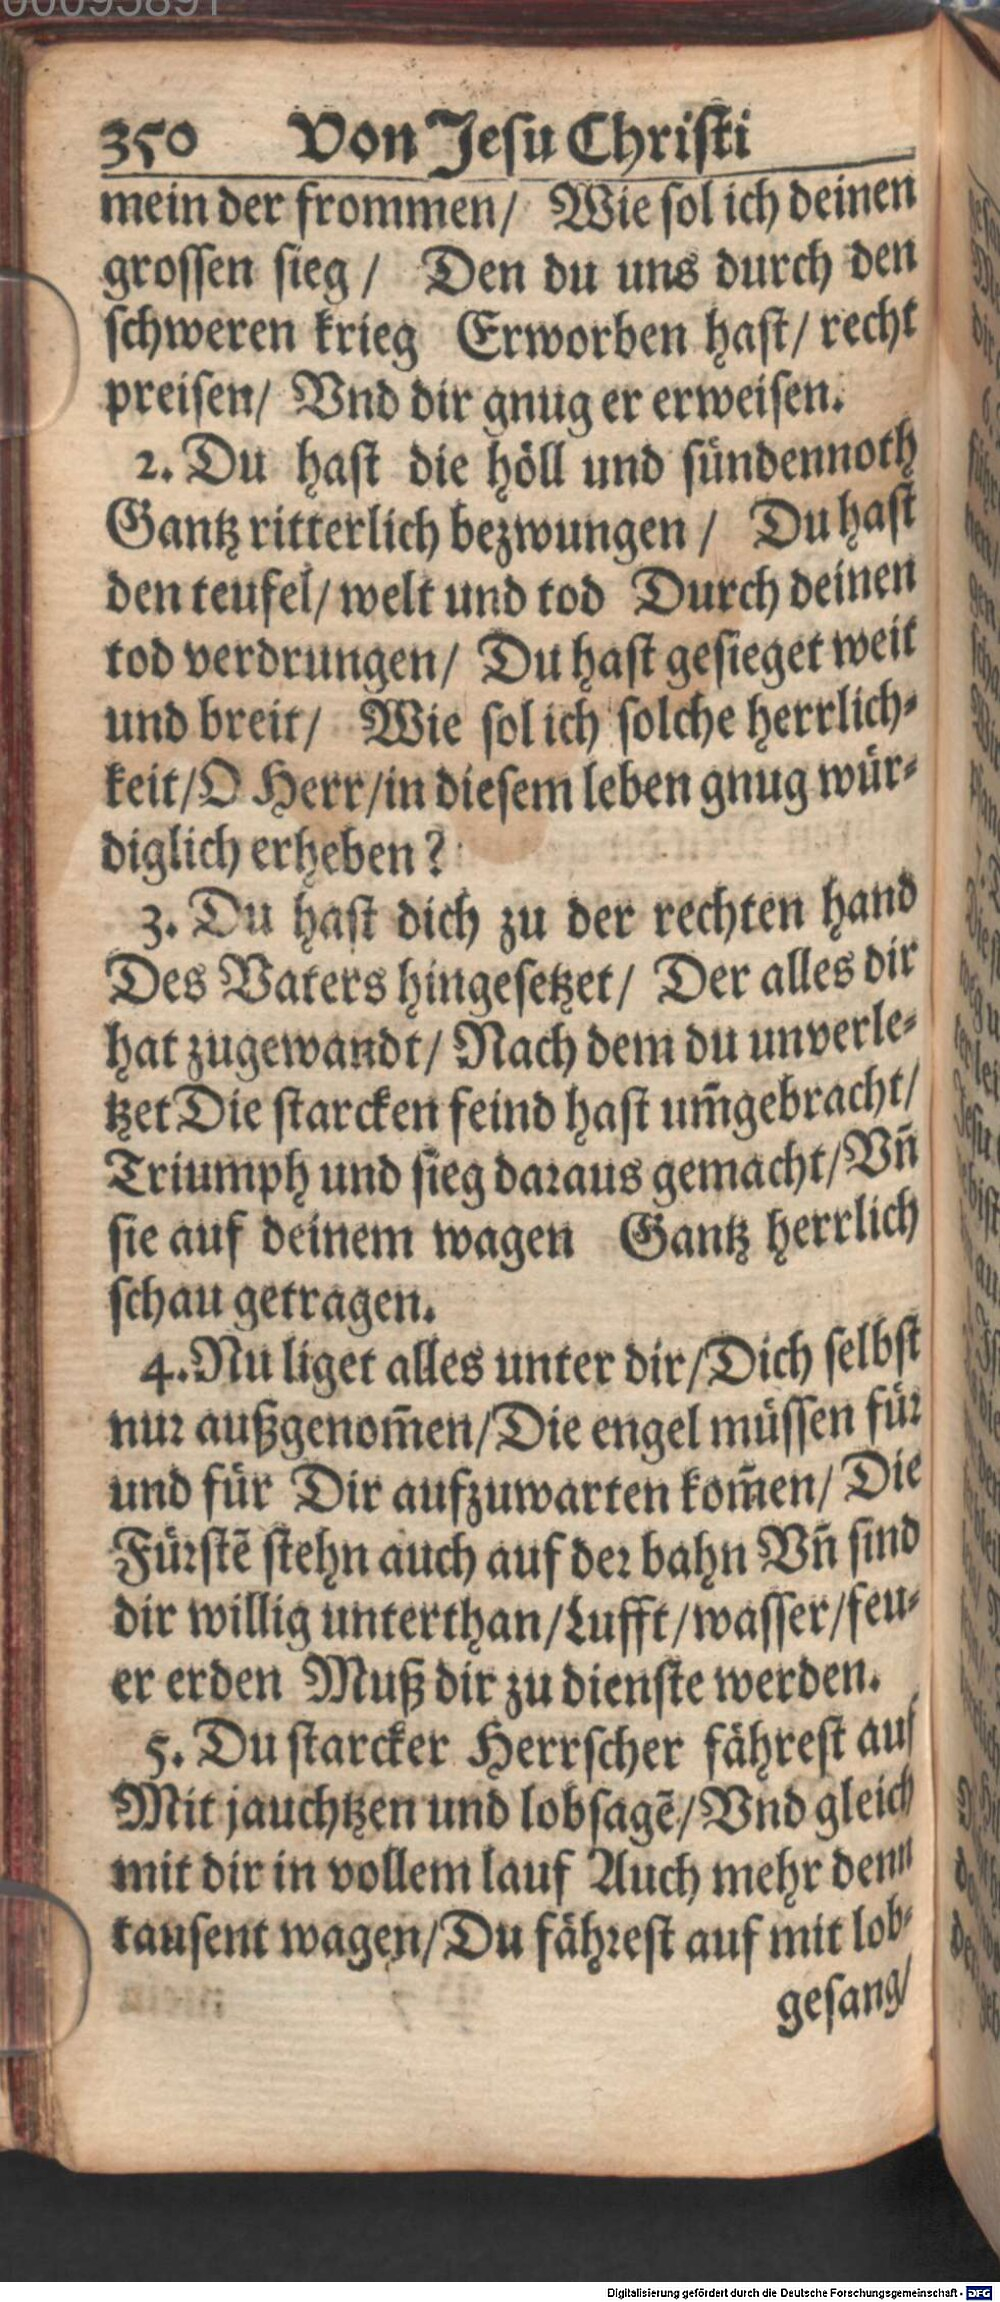 00095891
350 Von Jesu Christi
mein der frommen/ Wie sol ich deinen
grossen sieg/ Den du uns durch den
schweren krieg Erworben hast/ recht
preisen/ Vnd dir gnug er erweisen.
2. Du hast die höll und sündennoth
Gantz ritterlich bezwungen/ Du hast
den teufel/ welt und tod Durch deinen
tod verdrungen/ Du hast gesieget weit
und breit/ Wie sol ich solche herrlich-
keit/ O Herr/ in diesem leben gnug wür-
diglich erheben?
3. Du hast dich zu der rechten hand
Des Vaters hingesetzet/ Der alles dir
hat zugewandt/ Nach dem du unverle-
tzet Die starcken feind hast um̃gebracht/
Triumph und sieg daraus gemacht/ Vñ
sie auf deinem wagen Gantz herrlich
schau getragen.
4. Nu liget alles unter dir/ Dich selbst
nur außgenom̃en/ Die engel müssen für
und für Dir aufzuwarten kom̃en/ Die
Fürstẽ stehn auch auf der bahn Vñ sind
dir willig unterthan/ Lufft/ wasser/ feu-
er erden Muß dir zu dienste werden.
5. Du starcker Herrscher fährest auf
Mit jauchtzen und lobsagẽ/ Vnd gleich
mit dir in vollem lauf Auch mehr denn
tausent wagen/ Du fährest auf mit lob-
gesang/
Digitalisierung gefördert durch die Deutsche Forschungsgemeinschaft - DFG